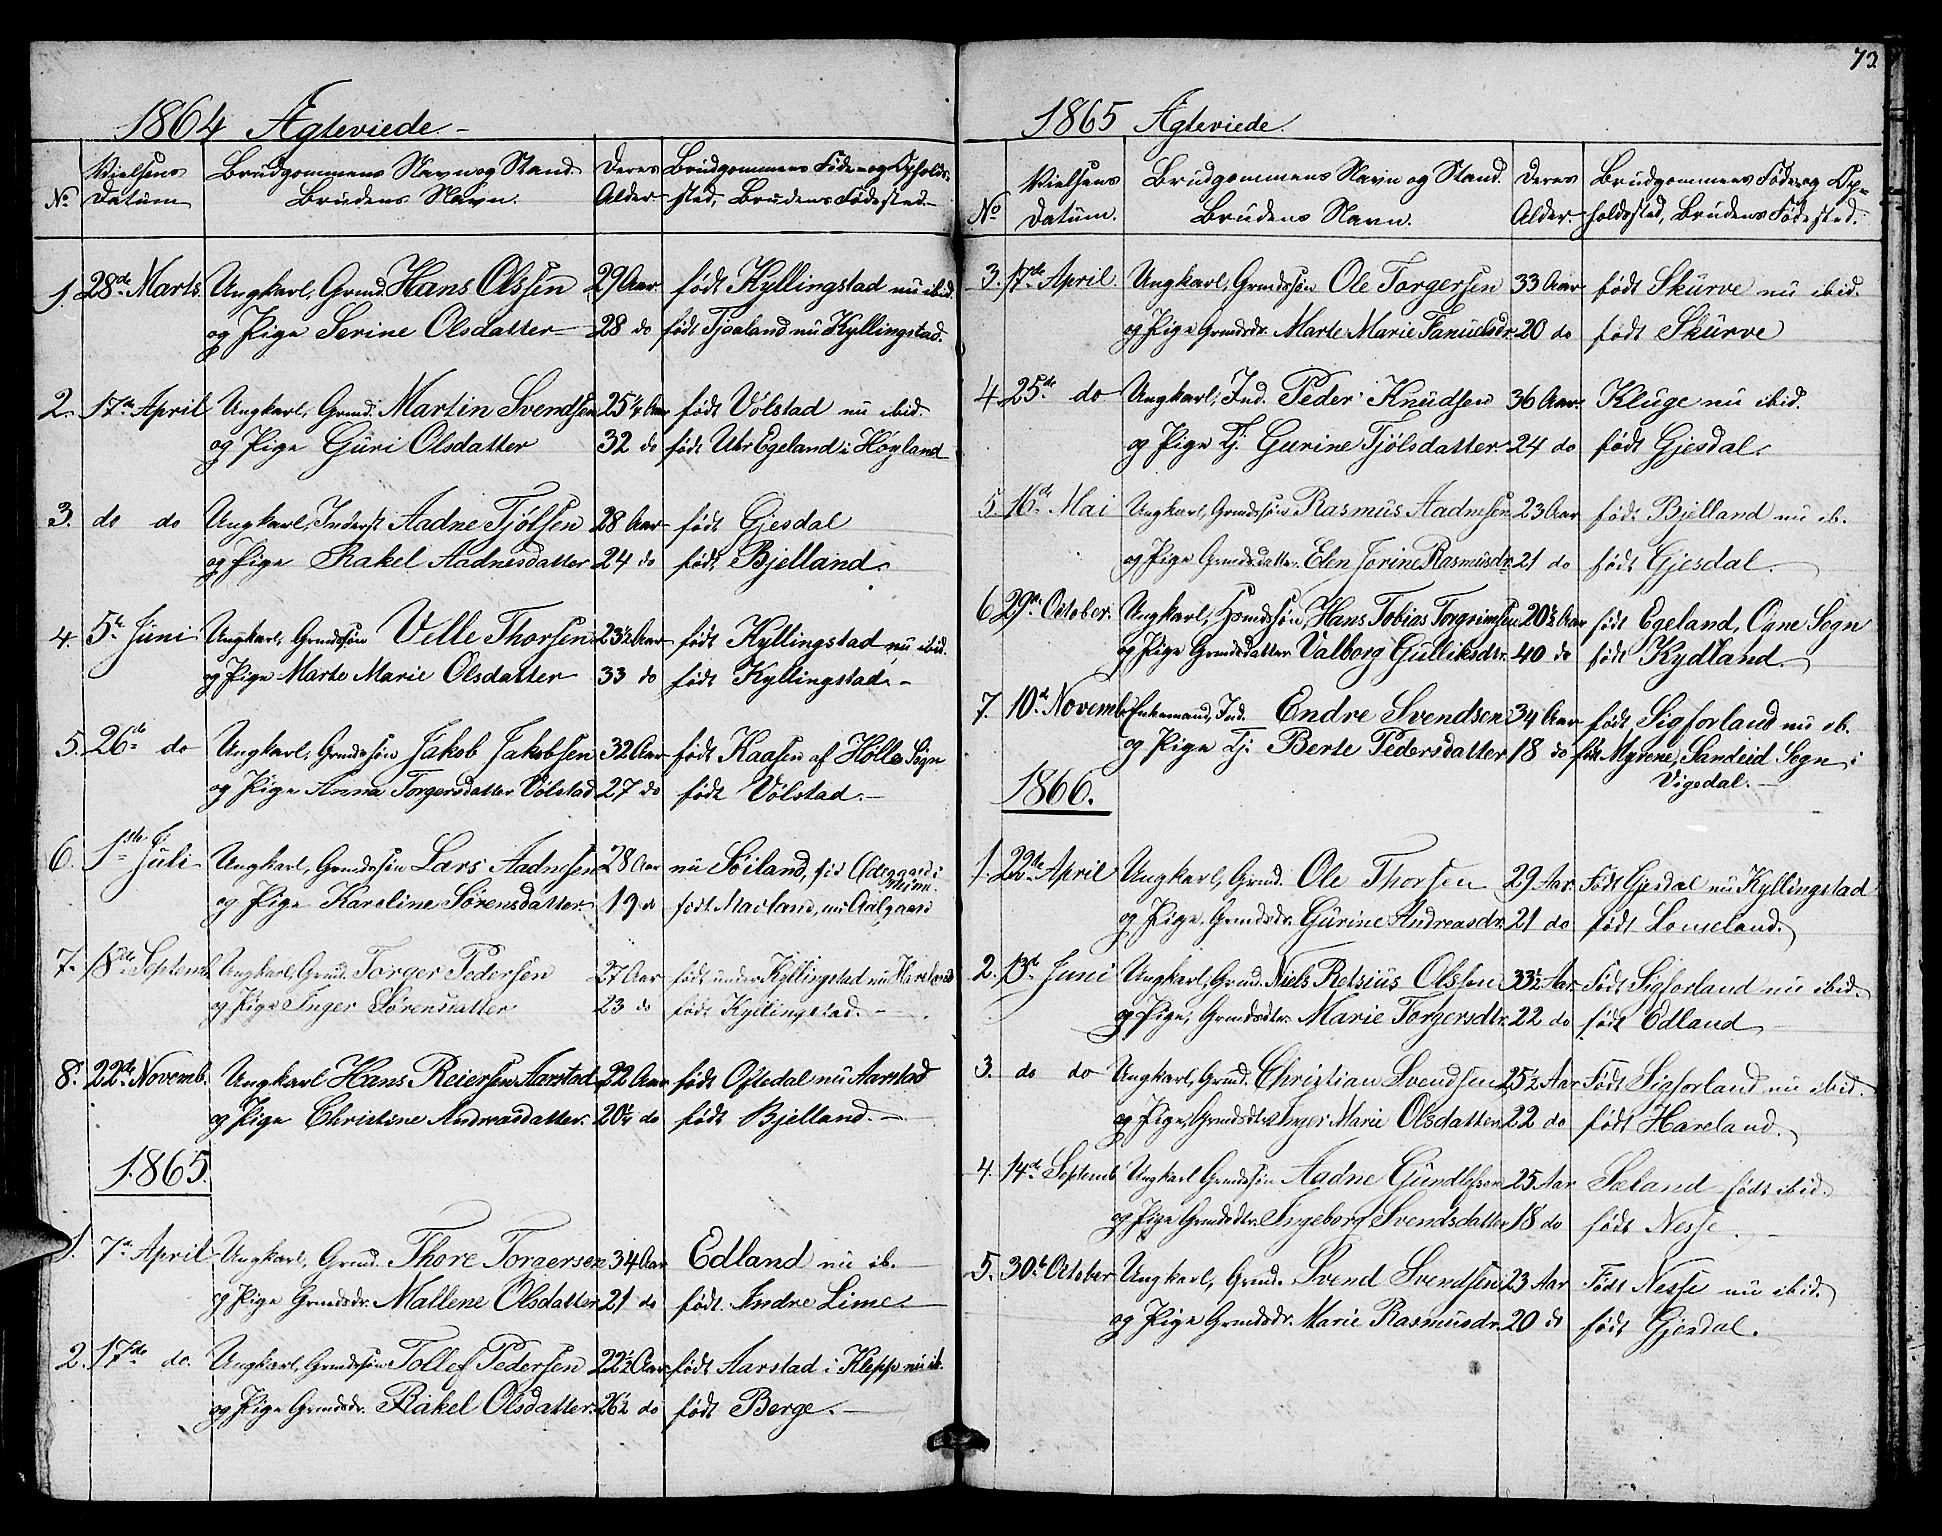 1864 Ægteviede
No Vielsens Datum Brudgommens Navn og Stand. Brudens Navn. Deres Alder Brudgommens Føde og Opholdssted, Brudens Fødested.
1. 28de Marts. Ungkarl, Grmd. Hans Olssen 29 Aar født Kyllingstad nu ibid.
og Pige Serine Olsdatter 28 do født Tjaaland nu Kyllingstad.
2. 17de April Ungkarl, Grmd. Martin Svendsen 25 1/4 Aar født Vølstad nu ibid.
og Pige Guri Olsdatter 32 do født Utr Egeland i Høyland
3. do do Ungkarl, Inderst Aadne Tjølsen 28 Aar født Gjesdal
og Pige Rakel Aadnesdatter 24 do født Bjelland.
4. 5te Juni Ungkarl, Grmdssøn Velle Thorsen 23 1/2 Aar født Kyllingstad nu ibid.
og Pige Marte Marie Olsdatter 33 do født Kyllingstad.
5. 26de do Ungkarl, Grmdssøn Jakob Jakobsen 32 Aar født Kaasen af Holle Sogn
og Pige Anna Torgersdatter Vølstad 27 do født Vølstad.
6. 1ste Juli Ungkarl, Grmdssøn Lars Aadnesen 28 Aar nu Søiland,
og Pige Kareline Sørensdatter 19 do født Mauland, nu Aalgaard
7. 18de Septemb. Ungkarl, Grmd. Torger Pedersen 27 Aar født under Kyllingstad nu Hareland
og Pige Inger Sørensdatter 23 do født Kyllingstad.
8. 22de Novemb. Ungkarl Hans Reiersen Aarstad 22 Aar født Oftedal nu Aarstad
og Pige Christine Andreasdatter. 20 1/4 do født Bjelland.
1865.
1. 7de April Ungkarl, Grmd. Thore Torgersen 34 Aar Edland nu ib.
og Pige Grmdsdr. Mallene Olsdatter 21 do født Indre Lime.
2. 17de do. Ungkarl, Grmdssøn Tollef Pedersen 22 1/2 Aar født Aarstad i Klepp nu ib.
og Pige Grmdsdr. Rakel Olsdatter. 26 1/2 do født Berge.
73.
1865 Ægteviede.
No Vielsens Datum. Brudgommens Navn og Stand. Brudens Navn. Deres Alder. Brudgommens Føde og Opholdssted, Brudens Fødested.
3. 17de April. Ungkarl, Grmdssøn Ole Torgersen 33 Aar født Skurve nu ibid.
og Pige Grmdsdr. Marte Marie Tanuelsdr. 20 do født Skurve
4. 25de do Ungkarl, Ind. Peder Knudsen 36 Aar. Kluge nu ibid.
og Pige Tj. Gurine Tjølsdatter. 24 do født Gjesdal.
5. 16de Mai Ungkarl, Grmdssøn Rasmus Aadnesen 23 Aar født Bjelland nu ib.
og Pige Grmdsdatter. Elen Jorine Rasmusdr. 21 do født Gjesdal.
6 29de October. Ungkarl, Grmdssøn, Hans Tobias Torgrimsen 20 1/2 Aar født Egeland, Ogne Sogn
og Pige Grmdsdatter Valborg Gulliksdtr. 40 do født Kydland.
7. 10de Novemb. Enkemand, Ind. Endre Svendsen 34 Aar født Sigforland nu ib.
og Pige Tj. Berte Pedersdatter 18 do født Myrene, Sandeid Sogn i
Vigedal.
1866.
1. 22de April Ungkarl, Grmd. Ole Thorsen 29 Aar. Født Gjesdal nu Kyllingstad
og Pige, Grmdsdr. Gurine Andreasdr. 21 do født Lomeland.
2. 13de Juni Ungkarl, Grmd. Niels Retsius Olssen 33 1/2 Aar. Født Sigforland nu ibid.
og Pige, Grmdsdtr. Marie Torgersdtr. 22 do født Edland
3. do do Ungkarl, Grmd. Christian Svendsen 25 1/2 Aar Født Sigforland nu ibid.
og Pige, Grmdsdtr. Inger Marie Olsdatter. 22 do født Hareland.
4. 14de Septemb. Ungkarl Grmdssøn Aadne Gundlefsen 25 Aar Sæland født ibid.
og Pige Grmdsdtr. Ingeborg Svendsdatter 18 do født Nesse.
5. 30te October Ungkarl, Grmd. Svend Svendsen 23 Aar Født Nesse nu ibid.
og Pige Grmdsdr. Marie Rasmusdr. 20 do født Gjesdal.